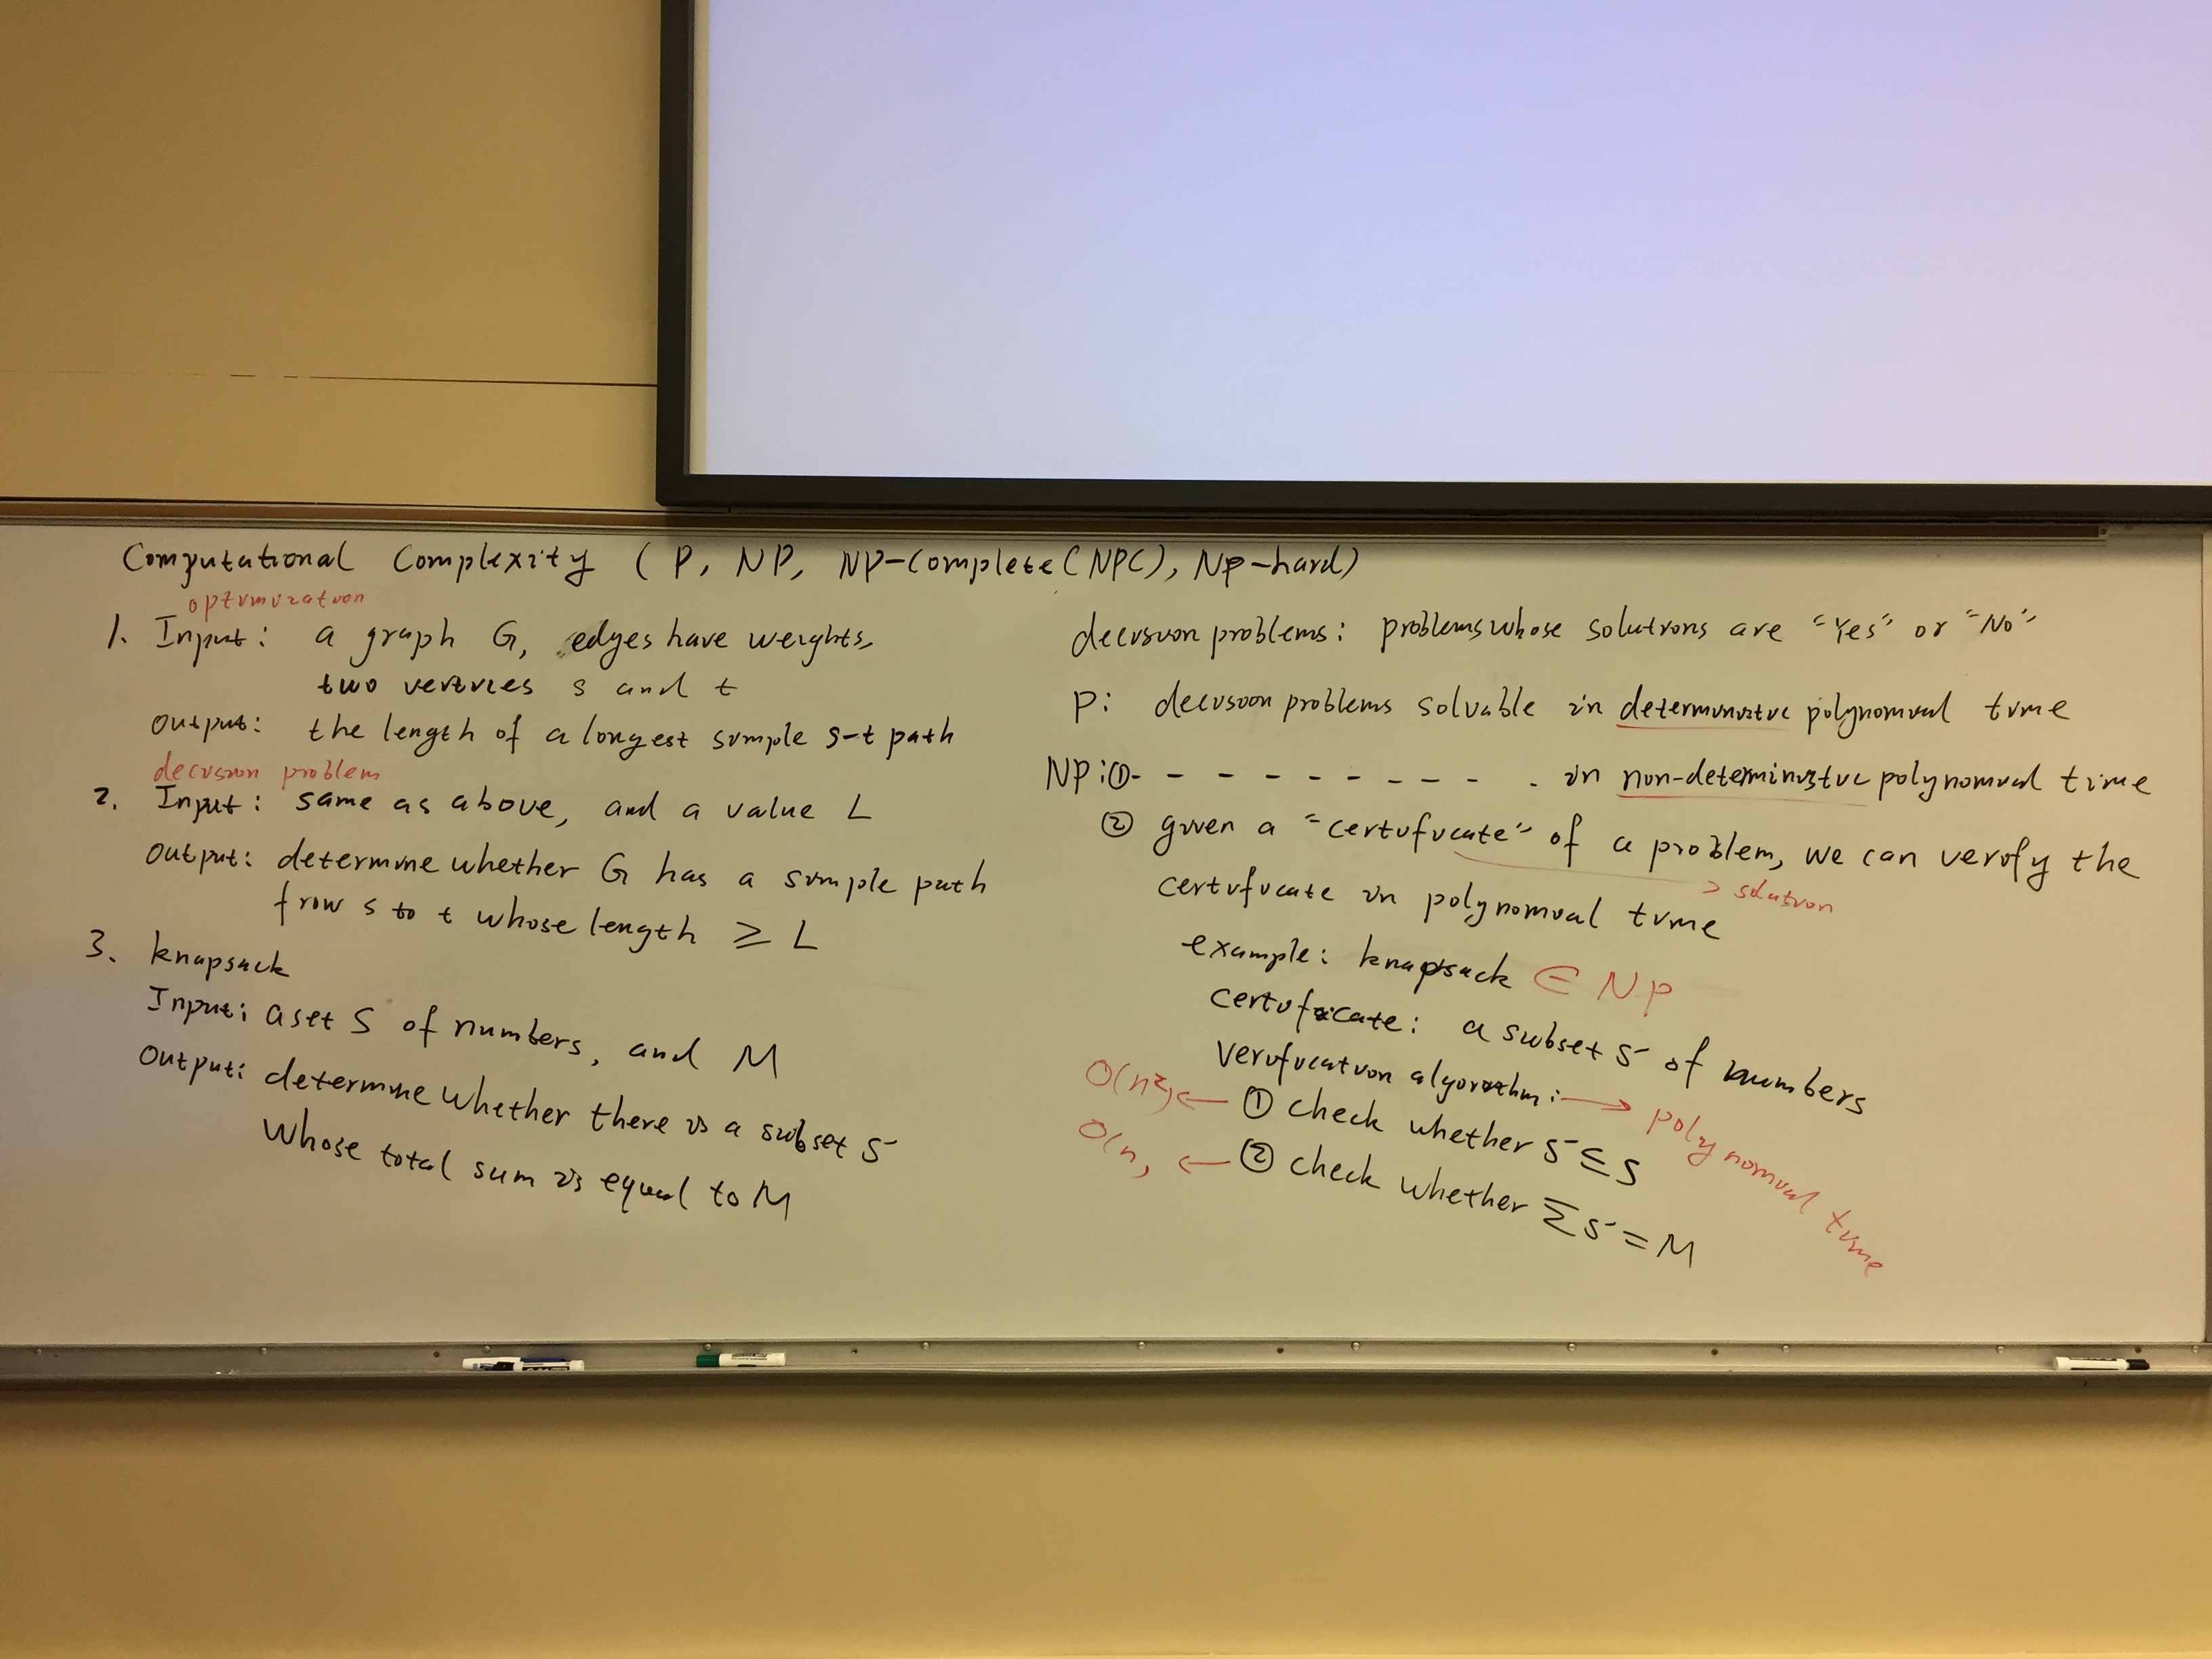 Computational Complexity (P, NP, NP-Complete(NPC), NP-hard)
optimization
1. Input: a graph G, edges have weights,
two vertices s and t
output: the length of a longest simple s-t path
decision problem
2. Input: same as above, and a value L
output: determine whether G has a simple path
from s to t whose length ≥ L
3. knapsack
Input: a set S of numbers, and M
Output: determine whether there is a subset S'
Whose total sum is equal to M
decision problems: problems whose solutions are "Yes" or "No"
P: decision problems solvable in deterministic polynomial time
NP: ① - - - - - - - - - in non-deterministic polynomial time
② given a "certificate" of a problem, we can verify the
→ solution
certificate in polynomial time
example: knapsack ∈ NP
certificate: a subset S' of numbers
Verification algorithm: → polynomial time
O(n²) ← ① check whether S' ⊆ S
O(n) ← ② check whether Σ S' = M